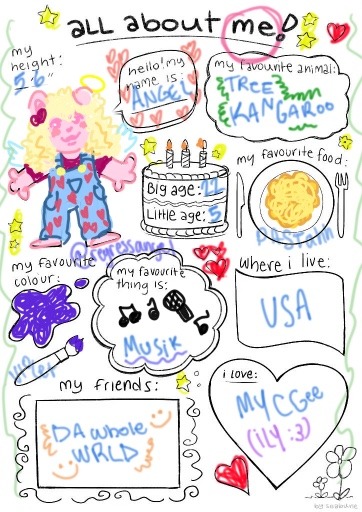 all about me!
my height:
5'6"
hello! my name is:
ANGEL
my favourite animal:
TREE KANGAROO
Big age:
Little age: 5
my favourite food:
my favourite colour:
my favourite thing is:
Musik
where i live:
USA
my friends:
DA whole WRLD
i love:
MY CGee
(ILY :3)